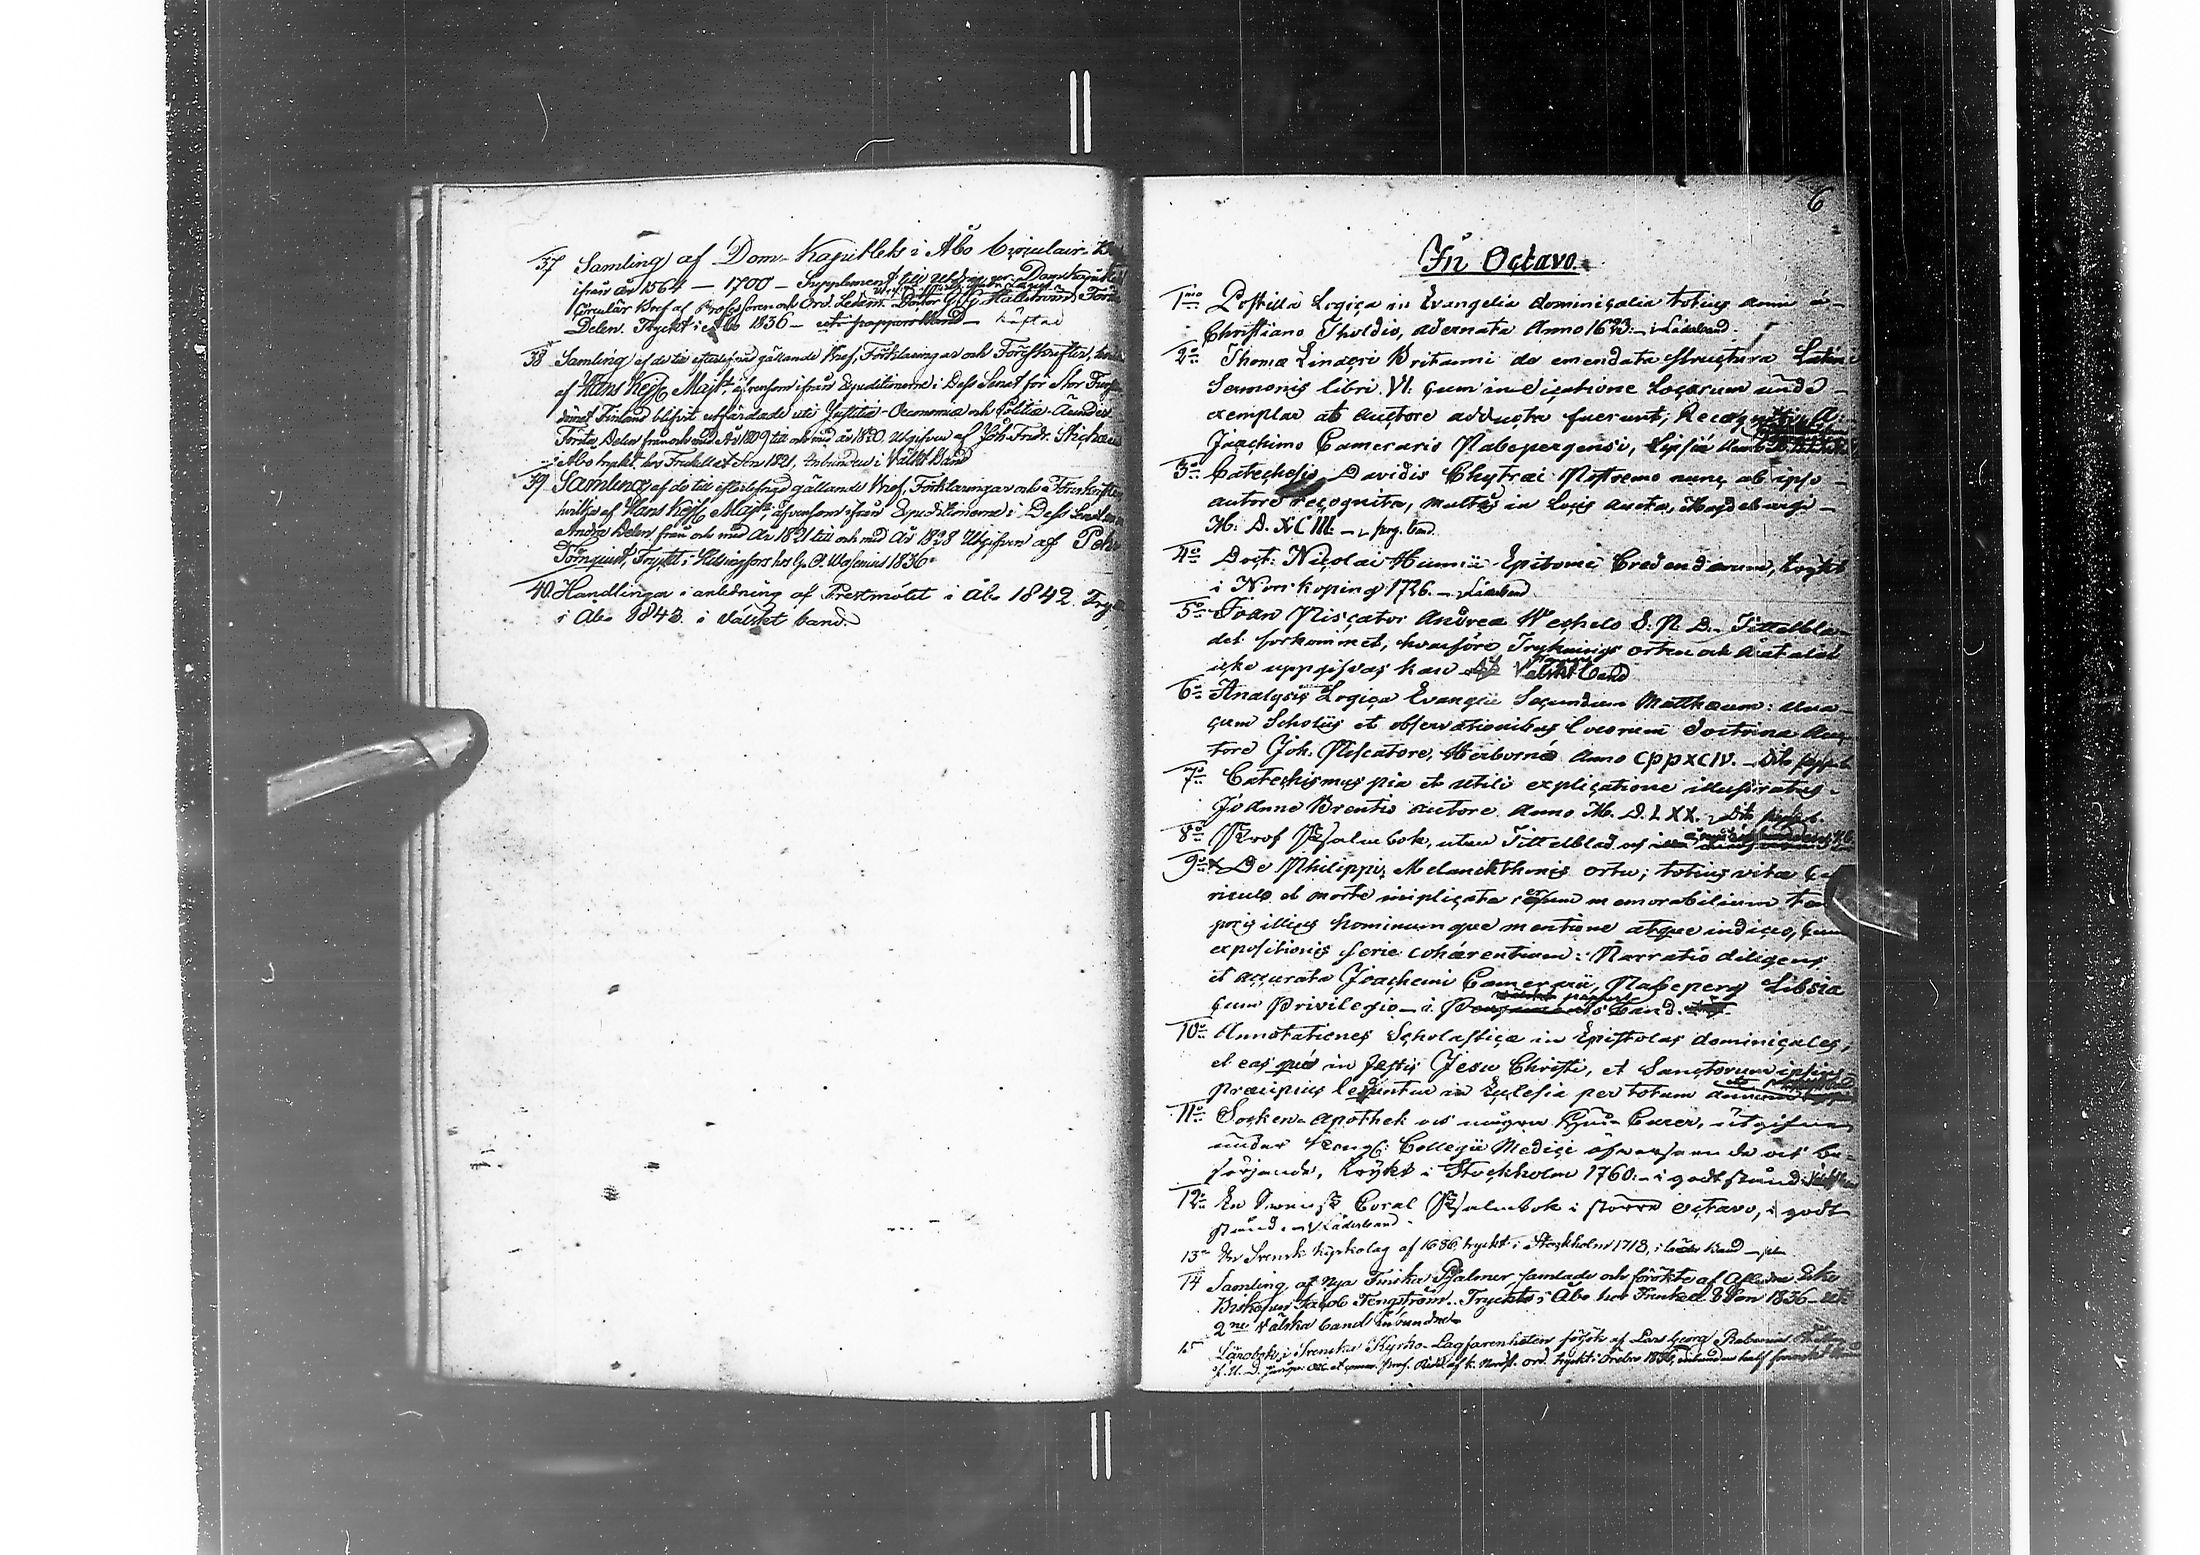 37 Samling af Dom-Kapitlets i Åbo Circulaire-
ifrån år 1564 — 1700 — Supplement
Circulär Bref af Professoren och Ord. Ledam. Doctor G. G. Hällström Förra
Delen. Tryckt i Åbo 1836 — uti pappersband — häftad
38 Samling af de til efterlefnad gällande Bref, Förklaringar och Föreskrifter,
af Hans Kejs. Majt, äfvensom ifrån Expeditionerne i Dess Senat för Stor Furste-
dömet Finland blifvit utfärdade uti Justitiæ-Oeconomiæ och Politiæ-Ärender
Första Delen från och med År 1809 till och med år 1820. Utgifven af Joh. Fredr. Stichæus
i Åbo tryckt hos Frenckell et Son 1821, inbunden i Välskt Band
39 Samling af de till efterlefnad gällande Bref, Förklaringar och Föreskrifter
hvilka af Hans Kejs. Majt, äfvensom ifrån Expeditionerne i Dess Senat
Andra Delen från och med År 1821 till och med År 1828 Utgifven af Pehr
Törnquist, Tryckt i Helsingfors hos G. O. Wasenius 1836
40 Handlingar i anledning af Prestmötet i Åbo 1842. Tryckt
i Åbo 1843. i välskt band.
6
In Octavo.
1mo Postilla Logica in Evangelia dominicalia totius anni a-
Christiano Tholdio, adernata Anno 1623 — i Läderband.
2o Thomæ Linacri Britanni de emendata structura Latini
Sermonis libri VI. cum indicatione locorum unde
exemplar ab auctore adducta fuerunt; Recognitum a
Joachimo Camerario Pabepergensi, Lipsiä
3o Catechesis Davidis Chytræi Postremo nunc ab ipso
autore recognita, multis in locis aucta, Magdeburgi
M. D. XCIII. — perg. band
4o Doct: Nicolai Hunnii Epitome Credendorum, tryckt
i Norrkoping 1726. — Läderband
5o Joan Piscator Andreæ Wechelo S. P. D. Tittelbla-
det forkommit, hvarföre Tryknings orten och årtalet
icke uppgifvas kan Välskt band
6o Analysis Logica Evangelii Secundum Matthæum: una
cum Scholiis et observationibus locorum doctrina Auc-
tore Joh. Piscatore, Herbornæ Anno
7o Catechismus pia et utili explicatione illustratus
Joanne Brentio autore Anno M. D. LXX.
8o Prof Psalmbok, utan Tittelblad
9o De Philippi Melanchthonis ortu; totius vitæ cu
riculo et morte implicata rerum memorabilium tem
poris illius hominumque mentione atque indicio, cum
expositionis serie cohærentium: Narratio diligens
et accurata Joachimi Camerarii, Pabeperg Libsia
Cum Privilegio — i band.
10o Annotationes Scholasticæ in Epistolas dominicales,
et eas quæ in festis Jesu Christi, et Sanctorum ipsius
præcipuis leguntur in Ecclesia per totum annum
11o Socken-Apothek och någre Hus-Curer, utgifne
under Kongl: Collegii Medici öfverseende och be-
sörjande, tryckt i Stockholm 1760. — i godt stånd
12o En Swensk Coral Psalmbok i större octavo, i godt
stånd. — Läderband.
13o En Svensk Kyrkolag af 1686 tryckt i Stockholm 1718, i läder band
14 Samling af Nya Finska Psalmer samlade och försökte af Aflidne Erke
Biskopen Jacob Tengström. Tryckte i Åbo hos Frenckell & Son 1836 — uti
2ne välska band inbundne
15 Lärobok i Svenska Kyrko-Lagfarenheten försök af Lars Georg Rabenius
tryckt i Örebro 1836, inbunden half franskt band